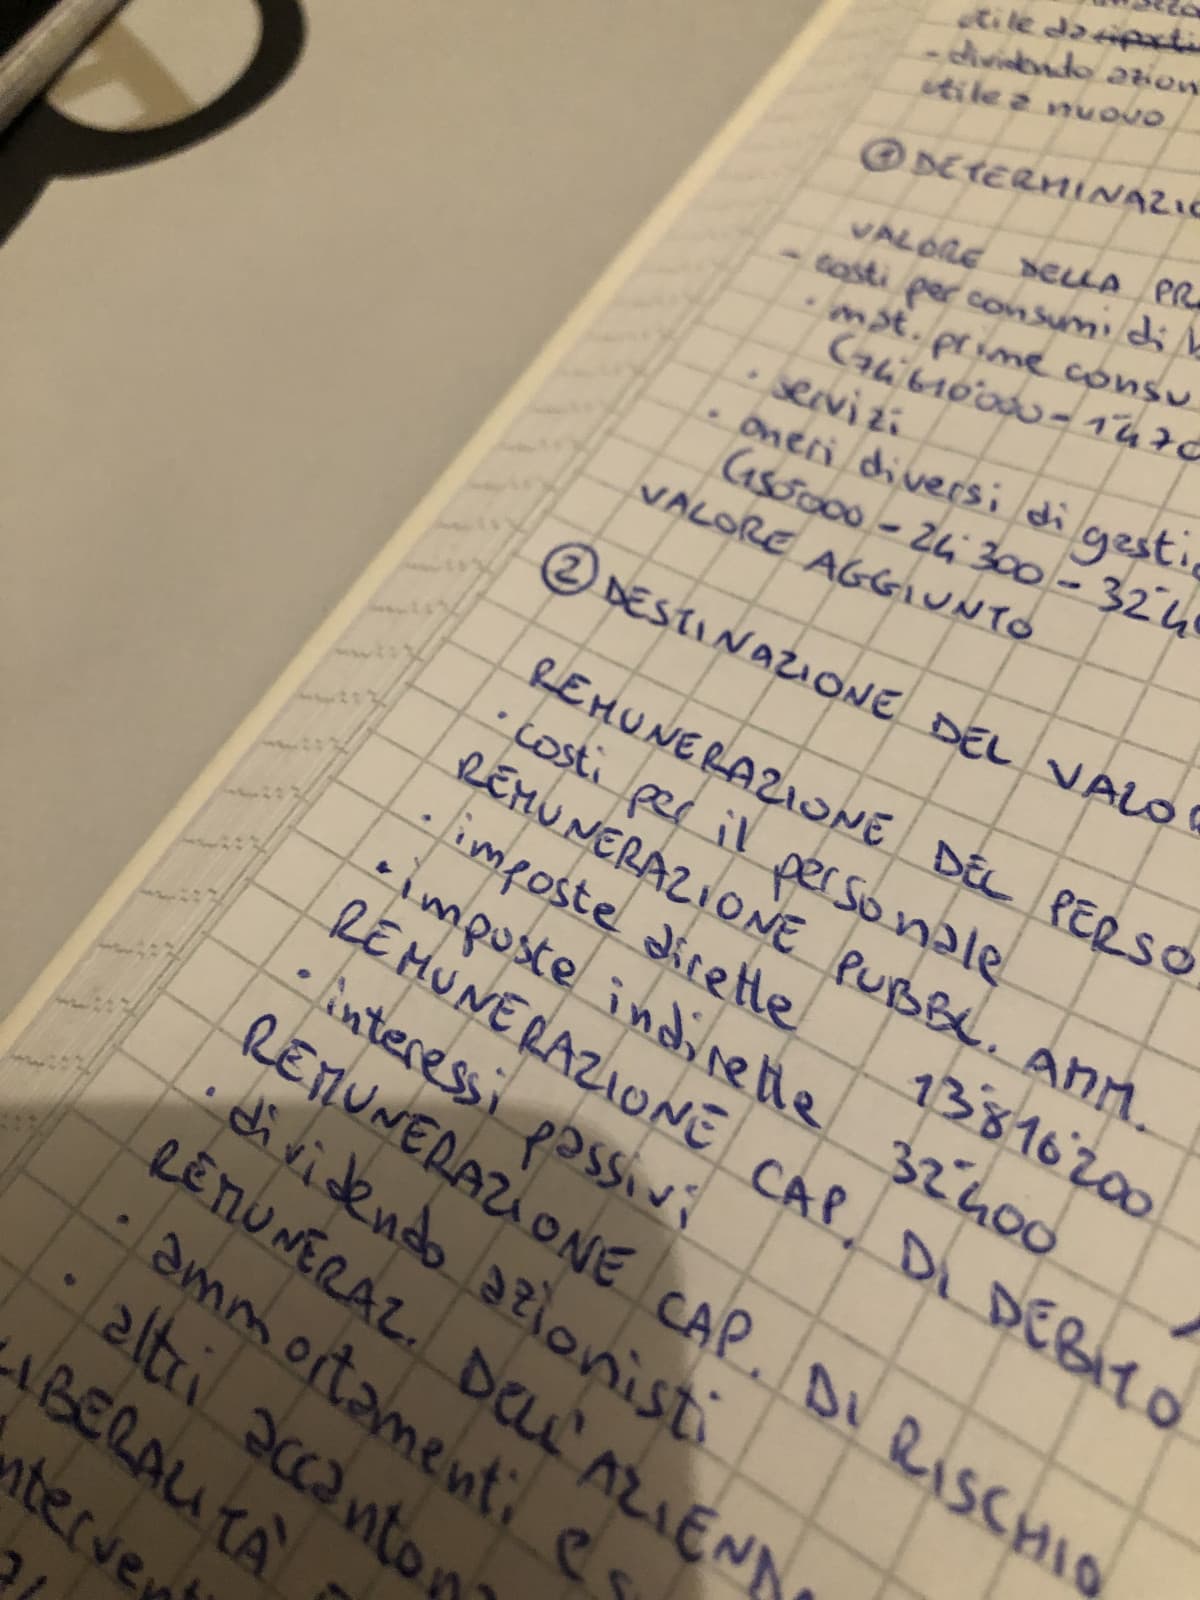 utile da riporti
- dividendo azion
utile a nuovo
① DETERMINAZIO
VALORE DELLA PR
- costi per consumi di
· mat. prime consu
(74'610'000 - 1'470
· servizi
· oneri diversi di gesti
(150'000 - 24'300 - 32'40
VALORE AGGIUNTO
② DESTINAZIONE DEL VALOR
REMUNERAZIONE DEL PERSO
· costi per il personale
REMUNERAZIONE PUBBL. AMM.
· imposte dirette 13'816'200
· imposte indirette 32'400
REMUNERAZIONE CAP. DI DEBITO
· interessi passivi
REMUNERAZIONE CAP. DI RISCHIO
· dividendo azionisti
REMUNERAZ. DELL'AZIENDA
· ammortamenti e s
· altri accanton
LIBERALITÀ
nterventi